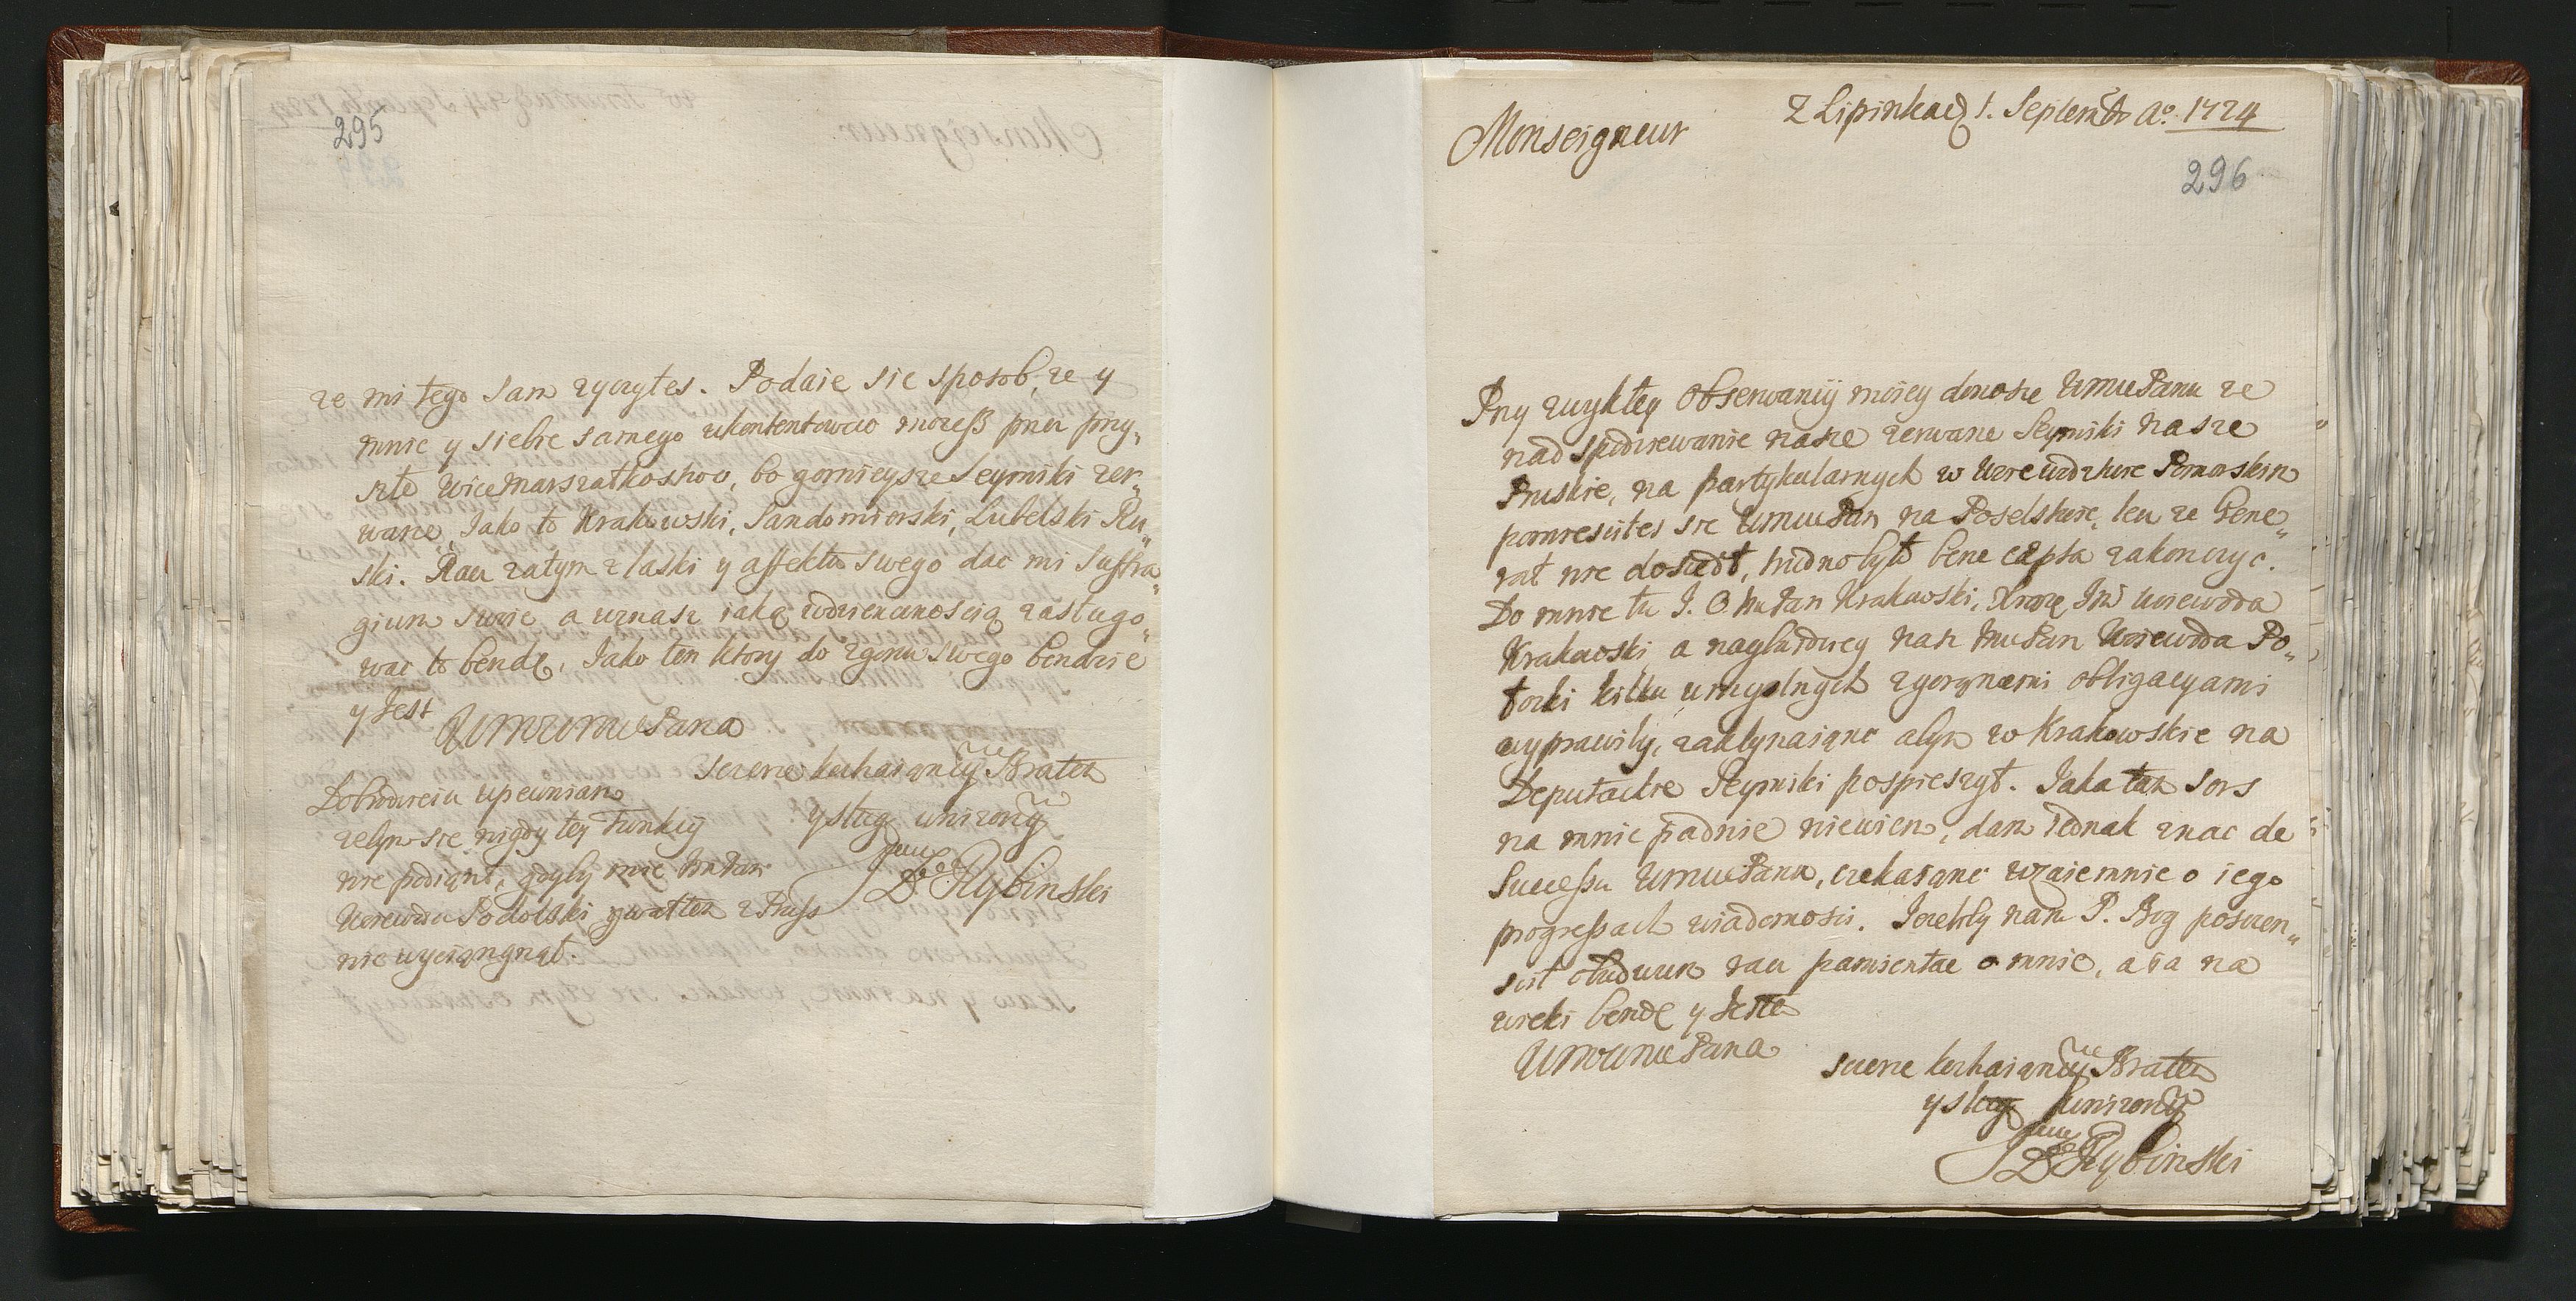 295
ze mi tego sam zyczytes. Podaie sie sposob, ze y
mnie y siebie samego ukontentowac mozess przez przy„
szłe Vice Marszałkostwo, bo gornieysze Seymiki zer„
wane, Jako to Krakowski, Sandomierski, Lubelski Ru„
ski. Racz zatym z laski y affektu swego dac mi suffra„
gium swoie a uznasz iaką wdziencznoscią zasługo„
wac to bendę, Jako ten ktory do zgonu swego bendzie
y Jest
WmWmePana
szczerze kochaiący Bratem
y sługą unizony
Rybinski
Dobrodzieia upewniam
zebym sie nigdy tey Funkcij
nie podiąnł, gdyby mie
Woiewoda Podolski gwałtem z Pruss
nie wyciąngnął.
Z Lipinkach 1. Septembr Ao. 1724
Monseigneur
296
Przy zwykłey Obserwancij moiey donosze WmmPanu ze
nad spodziewanie nasze zerwane Seymiki nasze
Pruskie, na partykularnych w Woiewodztwie Pomorskim
pomiesciłes sie WmmPan na Poselstwie, lecz ze Gene„
rał nie doszedł, trudno było bene cæpta zakonczyc.
Do mnie tu J. O. Pan Krakowski, Xiązę Jm Woiewoda
Krakowski a naybardziey nasz Pan Woiewoda Po„
łocki kilku umyslnych z gorąnemi obligacyami
wyprawily, zaklynaiąnc abym w Krakowskie na
Deputackie Seymiki pospieszył. Jaka tam sors
na mnie padnie niewiem, dam iednak znac de
Successu WmmPanu, czekaiąnc wzaiemnie o iego
progressach wiadomosci. Jezeliby nam P. Bog poszczen„
scił obudwum racz pamientac o mnie, a ia na
wieki bendę y Jestem
WmWmePana
szczerze kochaiący Bratem
y sługą unizony
Rybinski